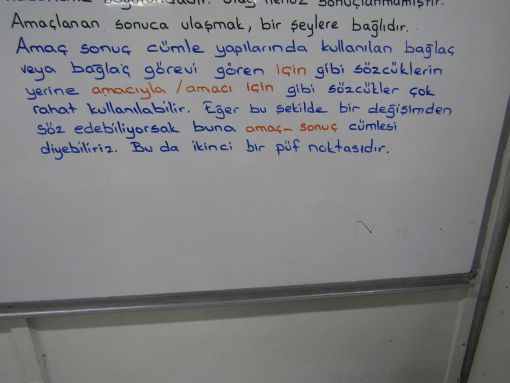 boyutundadır. Olay henüz sonuçlanmamıştır.
Amaçlanan sonuca ulaşmak, bir şeylere bağlıdır.
Amaç sonuç cümle yapılarında kullanılan bağlaç
veya bağlaç görevi gören için gibi sözcüklerin
yerine amacıyla / amacı için gibi sözcükler çok
rahat kullanılabilir. Eğer bu şekilde bir değişimden
söz edebiliyorsak buna amaç-sonuç cümlesi
diyebiliriz. Bu da ikinci bir püf noktasıdır.